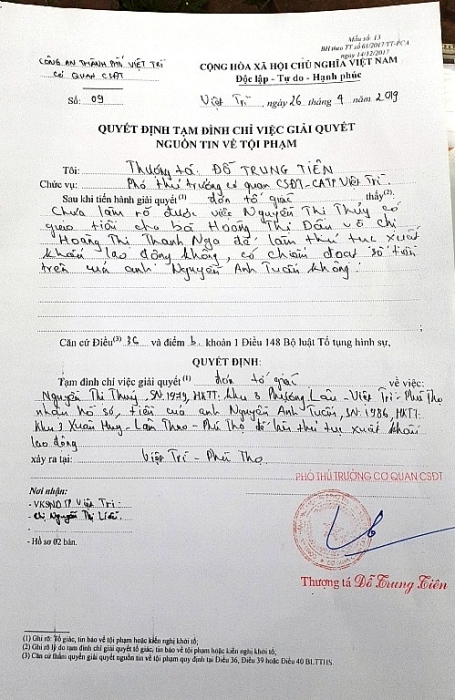 Mẫu số: 13
BH theo TT số 61/2017/TT-BCA
ngày 14/12/2017
CÔNG AN THÀNH PHỐ VIỆT TRÌ
CƠ QUAN CSĐT
CỘNG HÒA XÃ HỘI CHỦ NGHĨA VIỆT NAM
Độc lập - Tự do - Hạnh phúc
Số: 09
Việt Trì, ngày 26 tháng 4 năm 2019
QUYẾT ĐỊNH TẠM ĐÌNH CHỈ VIỆC GIẢI QUYẾT
NGUỒN TIN VỀ TỘI PHẠM
Tôi: Thượng tá: ĐỖ TRUNG TIẾN
Chức vụ: Phó thủ trưởng cơ quan CSĐT-CATP Việt Trì.
Sau khi tiến hành giải quyết(1) đơn tố giác thấy(2).
Chưa làm rõ được việc Nguyễn Thị Thúy có
giao tiền cho bà Hoàng Thị Dần và chị
Hoàng Thị Thanh Nga để làm thủ tục xuất
khẩu lao động không, có chiếm đoạt số tiền
trên của anh Nguyễn Anh Tuấn không.
Căn cứ Điều(3) 36 và điểm b khoản 1 Điều 148 Bộ luật Tố tụng hình sự,
QUYẾT ĐỊNH:
Tạm đình chỉ việc giải quyết(1) đơn tố giác về việc:
Nguyễn Thị Thúy, SN:1979, HKTT: khu 3 Phượng Lâu - Việt Trì - Phú Thọ
nhận hồ sơ, tiền của anh Nguyễn Anh Tuấn, SN:1986, HKTT:
khu 3 Xuân Huy - Lâm Thao - Phú Thọ để làm thủ tục xuất khẩu
lao động
xảy ra tại: Việt Trì - Phú Thọ
Nơi nhận:
- VKSND TP Việt Trì
- Chị Nguyễn Thị
- Hồ sơ 02 bản.
PHÓ THỦ TRƯỞNG CƠ QUAN CSĐT
Thượng tá Đỗ Trung Tiến
(1) Ghi rõ: Tố giác, tin báo về tội phạm hoặc kiến nghị khởi tố;
(2) Ghi rõ lý do tạm đình chỉ giải quyết tố giác, tin báo về tội phạm hoặc kiến nghị khởi tố;
(3) Căn cứ thẩm quyền giải quyết nguồn tin về tội phạm quy định tại Điều 36, Điều 39 hoặc Điều 40 BLTTHS.